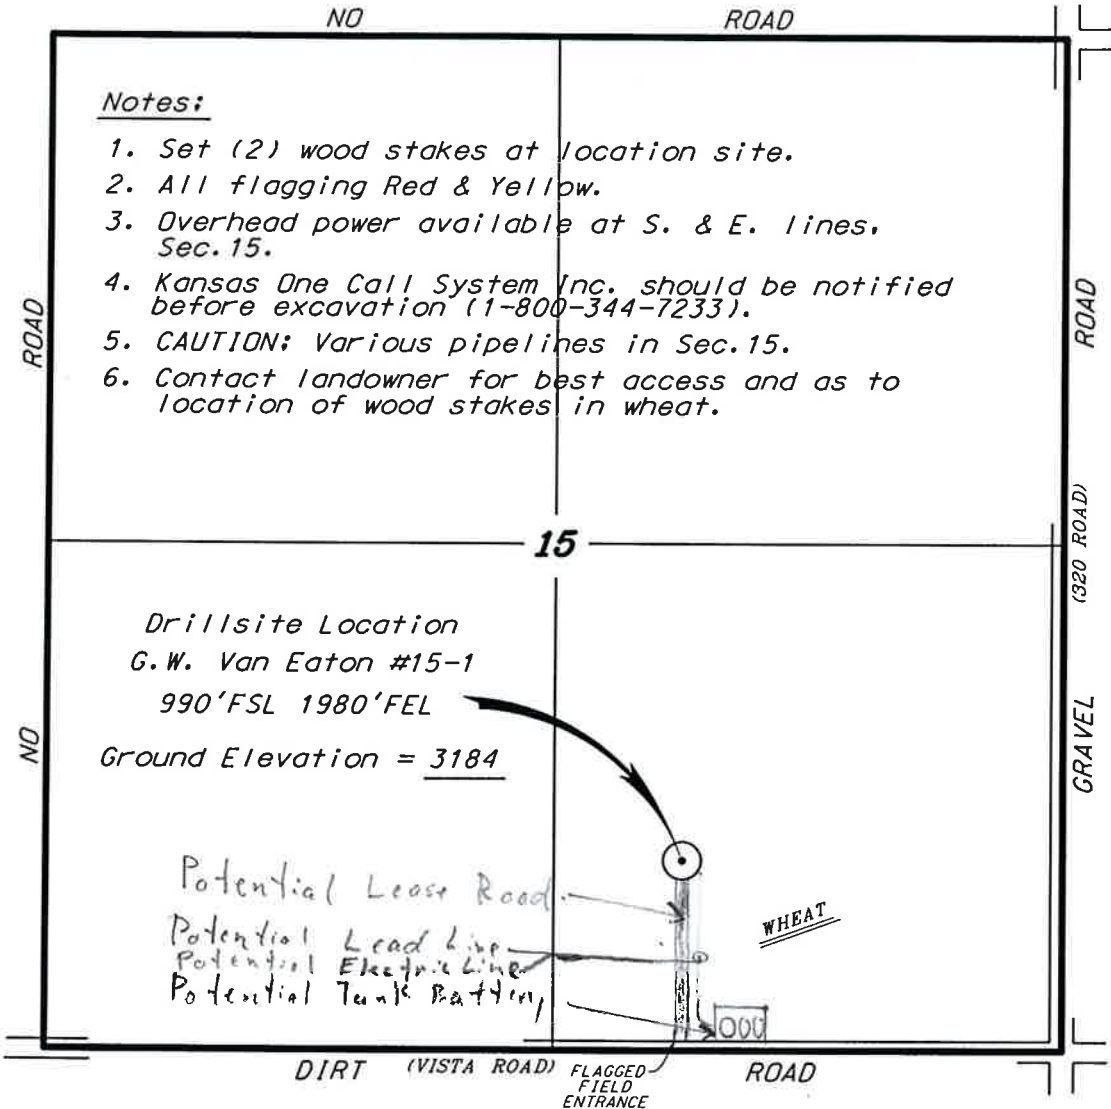 NO ROAD
Notes:
1. Set (2) wood stakes at location site.
2. All flagging Red & Yellow.
3. Overhead power available at S. & E. lines,
Sec. 15.
4. Kansas One Call System Inc. should be notified
before excavation (1-800-344-7233).
5. CAUTION: Various pipelines in Sec. 15.
6. Contact landowner for best access and as to
location of wood stakes in wheat.
ROAD
ROAD
(320 ROAD)
15
Drillsite Location
G.W. Van Eaton #15-1
990'FSL 1980'FEL
Ground Elevation = 3184
NO
GRAVEL
Potential Lease Road
WHEAT
Potential Lead Line
Potential Electric Line
Potential Tank Battery
000
DIRT (VISTA ROAD) ROAD
FLAGGED
FIELD
ENTRANCE